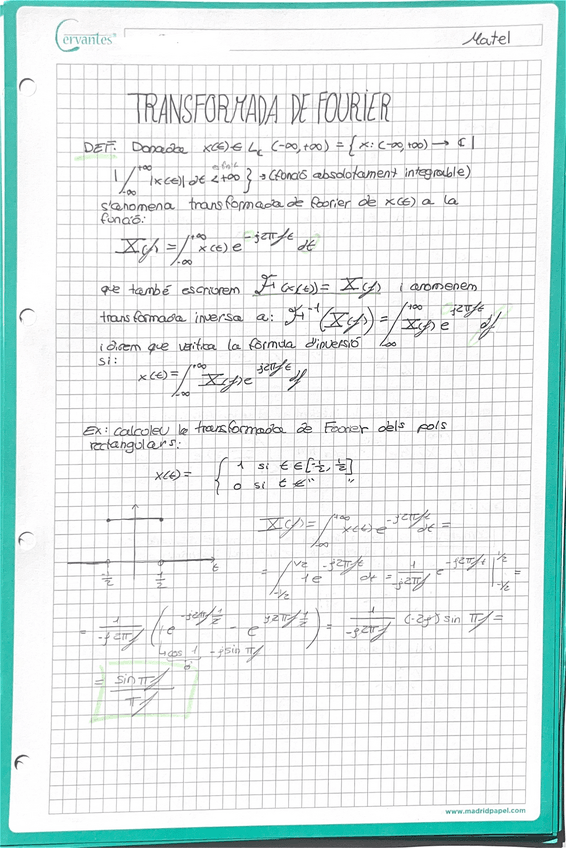 Cervantes®
Matel
TRANSFORMADA DE FOURIER
DEF. Donada x(t) ∈ L₁ (-∞,+∞) = { x: (-∞,+∞) → ℂ |
| ∫_{-∞}^{+∞} |x(t)| dt < +∞ } → (funció absolutament integrable)
s'anomena transformada de fourier de x(t) a la
funció:
X(f) = ∫_{-∞}^{+∞} x(t) e^{-j2πft} dt
que també escriurem F(x(t)) = X(f) i anomenem
transformada inversa a: F^{-1}(X(f)) = ∫_{-∞}^{+∞} X(f) e^{j2πft} df
i diem que verifica la fórmula d'inversió
si:
x(t) = ∫_{-∞}^{+∞} X(f) e^{j2πft} df
Ex: calculeu la transformada de Fourier dels pols
rectangulars:
x(t) = { 1 si t ∈ [-1/2, 1/2]
0 si t ∉ " "
X(f) = ∫_{-∞}^{+∞} x(t) e^{-j2πft} dt =
-1/2 1/2 t
= ∫_{-1/2}^{1/2} 1 e^{-j2πft} dt = 1/(-j2πf) e^{-j2πft} |_{-1/2}^{1/2} =
= 1/(-j2πf) (1e^{-j2πf 1/2} - e^{j2πf 1/2}) = 1/(-j2πf) (-2j) sin πf =
-jsin πf
= sin πf / πf
www.madridpapel.com